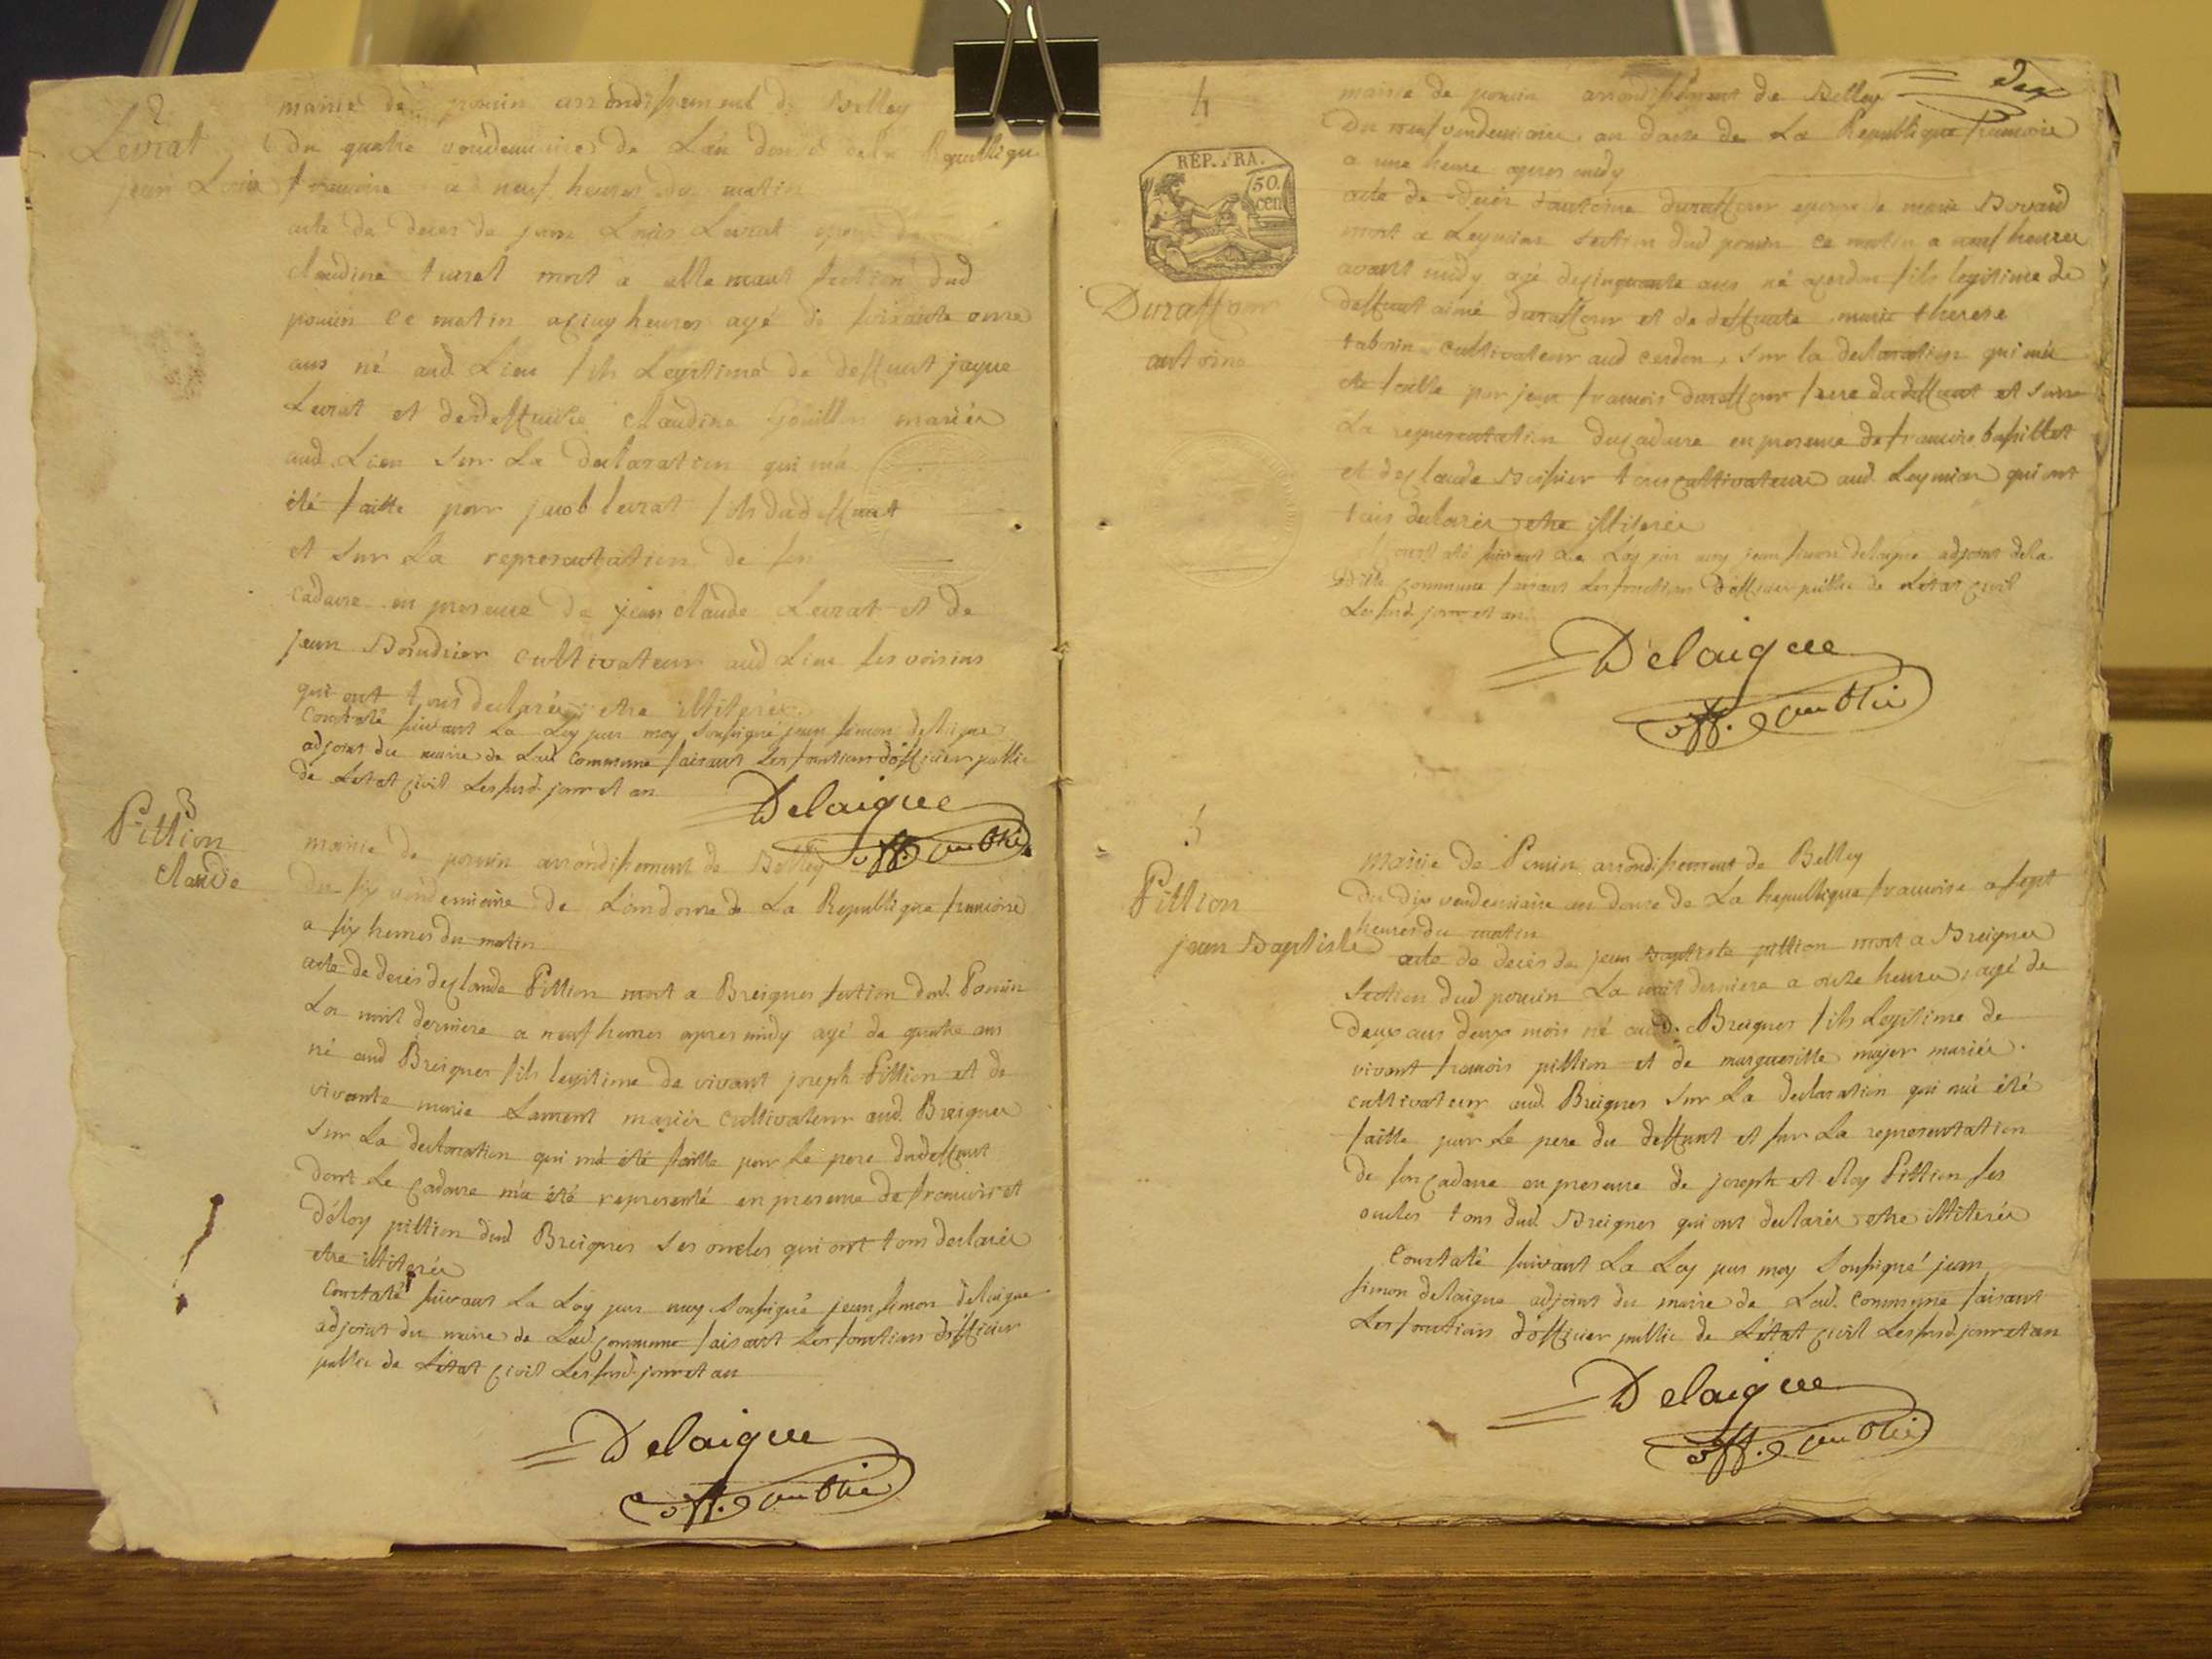 2
Levrat
jean Louis
mairie de pouin arrondissement de Belley
Du quatre vendemiaire de L'an douze de la Republique
francoise a neuf heures du matin
acte de deces de jean Louis Levrat epoux de
claudine turrel mort a allemaut section dud
pouin ce matin a cinq heures agé de soixante onze
ans né aud. Lieu fils Legitime de deffunt jaque
Levrat et de deffuncte claudine mariés
aud. Lieu sur La declaration qui m'a
été faitte par jacob levrat fils dud deffunt
et sur La representation de son
cadavre en presence de jean claude Levrat et de
jean Boindrier cultivateur aud Lieu ses voisins
qui ont tous declarés etre illiterés.
Constaté suivant La Loy par moy Soussigné jean simon delaigue
adjoint du maire de Lad. Commune faisant les fonctions d'officier public
de Létat civil Les susd. jour et an
Delaigue
off. public
3
Pittion
claude
mairie de pouin arrondissement de Belley
du six vendemiaire de L'an douze de La Republique francoise
a six heures du matin
acte de deces de claude Pittion mort a Breignes section dud. Pouin
La nuit derniere a neuf heures apres midy agé de quatre ans
né aud Breignes fils legitime de vivant joseph Pittion et de
vivante marie Lament mariés cultivateur aud. Breignes
sur La declaration qui m'a été faitte par le pere dud deffunt
dont Le cadavre m'a été representé en presence de francois et
d'éloy pittion dud Breignes ses oncles qui ont tous declarés
etre illiterés
Constaté suivant La Loy par moy Soussigné jean simon delaigue
adjoint du maire de Lad commune faisant Les fonctions d'officier
public de Létat civil Les susd. jour et an
Delaigue
off. public
4
REP. FRA.
50.
cen
Duraffour
antoine
mairie de pouin arrondissement de Belley
Du neuf vendemiaire an douze de La Republique francoise
a une heure apres midy
acte de deces d'antoine duraffour epoux de marie Bovard
mort a Leymiar section dud pouin ce matin a neuf heures
avant midy agé de cinquante ans né a cerdon fils legitime de
deffunt aimé duraffour et de deffuncte marie therese
taborin cultivateur aud cerdon, sur la declaration qui m'a
été faitte par jean francois duraffour frere dud deffunt et sur
La representation du cadavre en presence de francois bassillet
et de claude Boissier tous cultivateurs aud. Leymiar qui ont
tous declarés etre illiterés
Constaté suivant La Loy par moy jean simon delaigue adjoint de la
Ditte commune faisant Les fonctions d'officier public de Létat civil
Les susd. jour et an.
Delaigue
off. public
5
Pittion
jean Baptiste
Mairie de Pouin arrondissement de Belley
du dix vendemiaire an douze de La Republique francoise a sept
heures du matin
acte de deces de jean Baptiste pittion mort a Breignes
section dud pouin La nuit derniere a onze heures, agé de
deux ans deux mois né aud. Breignes fils Legitime de
vivant francois pittion et de margueritte mariés.
cultivateur aud. Breignes sur La declaration qui m'a été
faitte par Le pere du deffunt et sur La representation
de son cadavre en presence de joseph et eloy Pittion ses
oncles tous dud. Breignes qui ont declarés etre illiterés
Constaté suivant La Loy par moy soussigné jean
simon delaigue adjoint du maire de Lad. commune faisant
Les fonctions d'officier public de L'état civil Les susd. jour et an
Delaigue
off. public